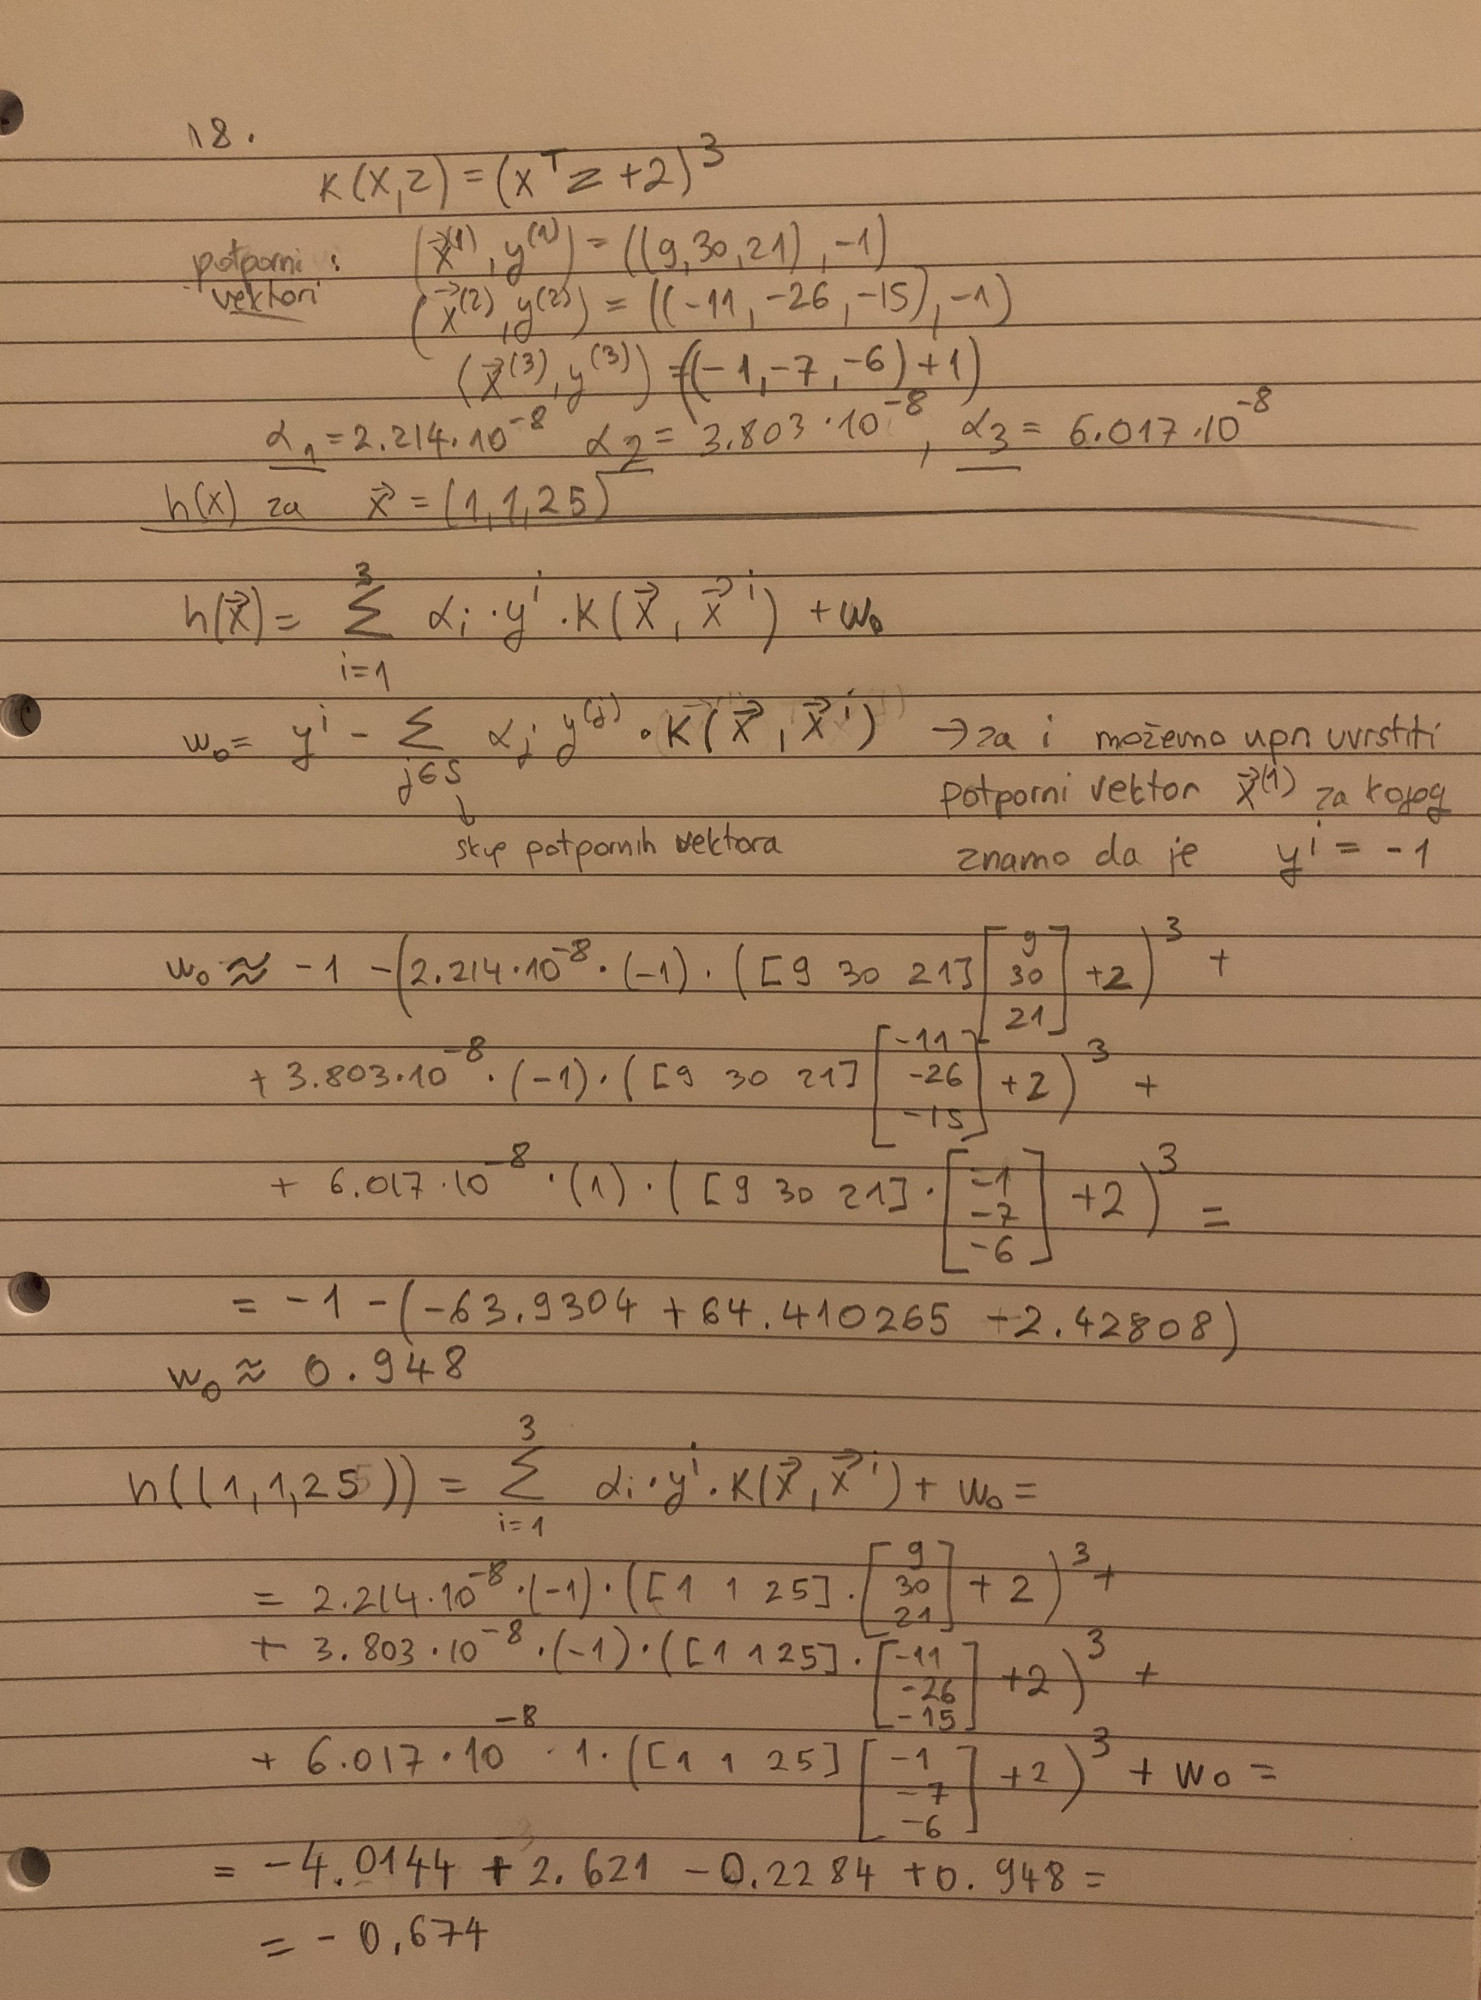 18.
K(x,z) = (xᵀz + 2)³
potporni : (x⃗⁽¹⁾, y⁽¹⁾) = ((9, 30, 21), -1)
vektori (x⃗⁽²⁾, y⁽²⁾) = ((-11, -26, -15), -1)
(x⃗⁽³⁾, y⁽³⁾) = ((-1, -7, -6) +1)
α₁ = 2.214·10⁻⁸ α₂ = 3.803·10⁻⁸, α₃ = 6.017·10⁻⁸
h(x) za x⃗ = (1,1,25)
h(x⃗) = ∑ᵢ₌₁³ αᵢ · yⁱ · K(x⃗, x⃗ⁱ) + w₀
w₀ = yⁱ - ∑_{j∈S} αⱼ y⁽ʲ⁾ · K(x⃗, x⃗ⁱ) → za i možemo npr uvrstiti
potporni vektor x⃗⁽¹⁾ za kojeg
↓ skup potpornih vektora znamo da je yⁱ = -1
w₀ ≈ -1 - (2.214·10⁻⁸ · (-1) · ([9 30 21] [9 30 21] + 2)³ +
+ 3.803·10⁻⁸ · (-1) · ([9 30 21] [-11 -26 -15] + 2)³ +
+ 6.017·10⁻⁸ · (1) · ([9 30 21] · [-1 -7 -6] + 2)³ =
= -1 - (-63.9304 + 64.410265 - 2.42808)
w₀ ≈ 0.948
h((1,1,25)) = ∑ᵢ₌₁³ αᵢ · yⁱ · K(x⃗, x⃗ⁱ) + w₀ =
= 2.214·10⁻⁸ · (-1) · ([1 1 25] · [9 30 21] + 2)³ +
+ 3.803·10⁻⁸ · (-1) · ([1 1 25] · [-11 -26 -15] + 2)³ +
+ 6.017·10⁻⁸ · 1 · ([1 1 25] [-1 -7 -6] + 2)³ + w₀ =
= -4.0144 + 2.621 - 0.2284 + 0.948 =
= -0.674